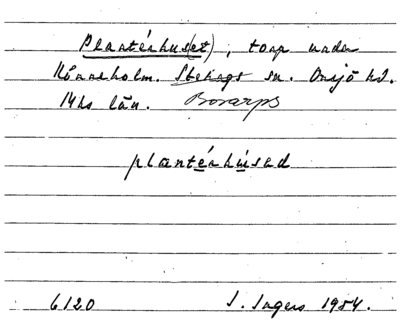 Plantérhus(et), torp under
Rönneholm. Stehags sn. Onsjö hd.
Mhs län. Bosarps
plantérhúsəd
6120 I. Ingers 1954.